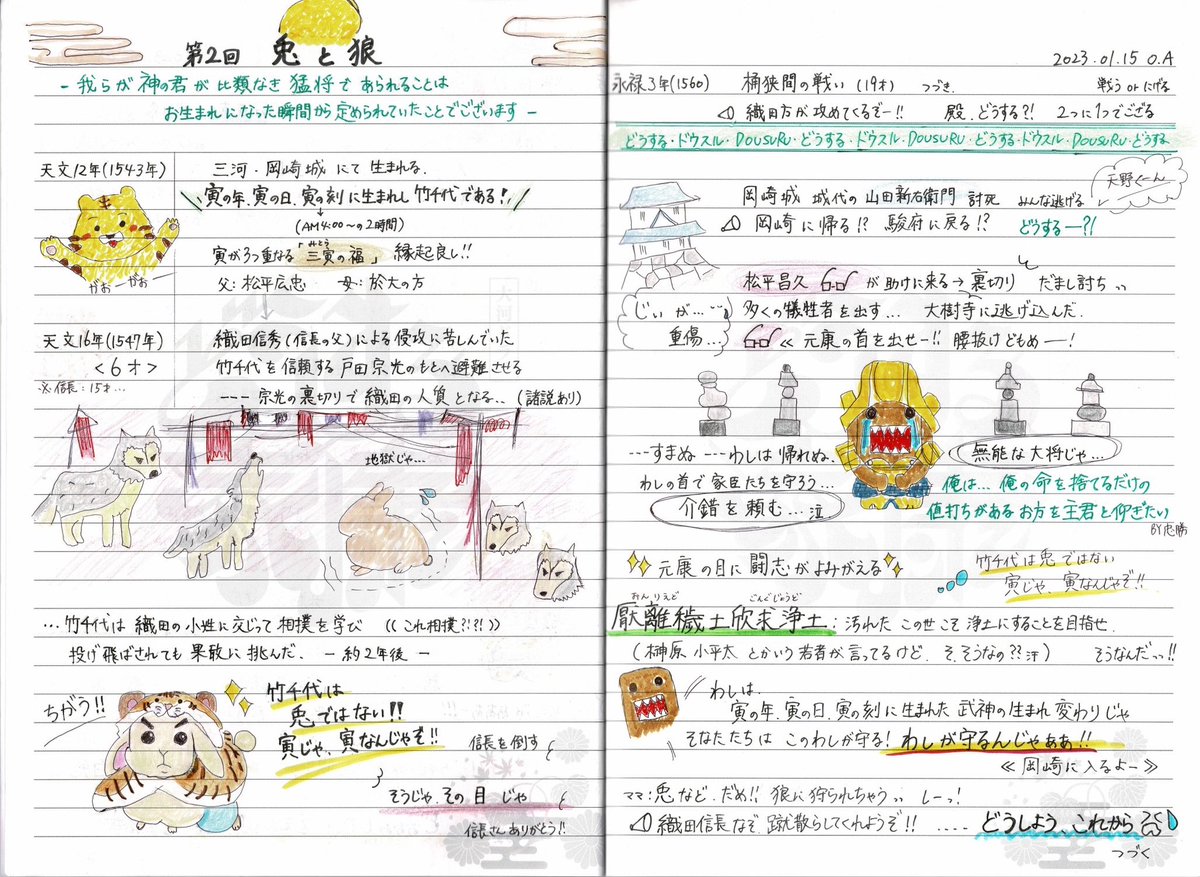 第2回 兎と狼
- 我らが神の君が比類なき猛将であられることは
お生まれになった瞬間から定められていたことでございます -
天文12年(1543年)
三河・岡崎城にて生まれる.
寅の年.寅の日.寅の刻に生まれし竹千代である!
(AM4:00~の2時間)
寅が3つ重なる「三寅の福」縁起良し!!
みとら
がおーがおー
父:松平広忠 母:於大の方
天文16年(1547年)
<6才>
※信長:15才...
織田信秀(信長の父)による侵攻に苦しんでいた
竹千代を信頼する戸田宗光のもとへ避難させる
--- 宗光の裏切りで織田の人質となる..(諸説あり)
地獄じゃ...
...竹千代は織田の小姓に交じって相撲を学び ((これ相撲?!?!))
投げ飛ばされても果敢に挑んだ. -約2年後-
ちがう!!
竹千代は
兎ではない!!
寅じゃ、寅なんじゃぞ!!
信長を倒す
そうじゃ.その目じゃ
信長さんありがとう!!
2023.01.15 O.A
永禄3年(1560) 桶狭間の戦い(19才) つづき.
戦うorにげる
織田方が攻めてくるぞー!! 殿、どうする?! 2つに1つでござる
どうする・ドウスル・DOUSURU・どうする・ドウスル・DOUSURU・どうする・ドウスル・DOUSURU・どうする
天野くーん
岡崎城 城代の山田新右衛門 討死 みんな逃げる
岡崎に帰る!? 駿府に戻る!? どうするー?!
松平昌久 が助けに来る→裏切り だまし討ちっっ
じぃが...
重傷...
多くの犠牲者を出す... 大樹寺に逃げ込んだ.
<< 元康の首を出せー!! 腰抜けどもめー!
---すまぬ---わしは帰れぬ.
わしの首で家臣たちを守ろう...
介錯を頼む...泣
無能な大将じゃ...
俺は...俺の命を捨てるだけの
値打ちがあるお方を主君と仰ぎたい
BY忠勝
元康の目に闘志がよみがえる
竹千代は兎ではない
寅じゃ、寅なんじゃぞ!!
おんりえど ごんぐじょうど
厭離穢土欣求浄土:汚れたこの世こそ浄土にすることを目指せ.
(榊原小平太とかいう若者が言ってるけど.そ、そうなの??汗) そうなんだっっ!!
わしは.
寅の年.寅の日.寅の刻に生まれた武神の生まれ変わりじゃ
そなたたちはこのわしが守る! わしが守るんじゃぁぁ!!
≪岡崎に入るよー≫
ママ:兎など.だめ!! 狼に狩られちゃうっっ しーっ!
織田信長なぞ蹴散らしてくれようぞ!! .... どうしよう、これから
つづく